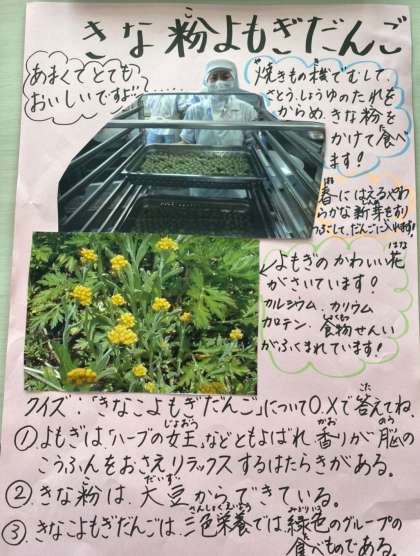 きな粉よもぎだんご
こ
あまくてとても
おいしいですよ!!......
焼きもの機でむして、
さとう、しょうゆのたれを
からめ、きな粉を
かけて食べ
ます!
春にはえるやわ
らかな新芽をすり
つぶして、だんごに入れます!
↙よもぎのかわいい花
はな
がさいています!
カルシウム、カリウム
カロテン、食物せんい
がふくまれています!
クイズ:「きなこよもぎだんご」についてO、Xで答えてね
こた
①よもぎは「ハーブの女王」などともよばれ、香りが脳の
じょおう
かお
のう
こうふんをおさえ、リラックスするはたらきがある。
②きな粉は、大豆からできている。
だいず
③きなこよもぎだんごは、三色栄養では緑色のグループの
さんしょくえいよう
みどりいろ
食べものである。